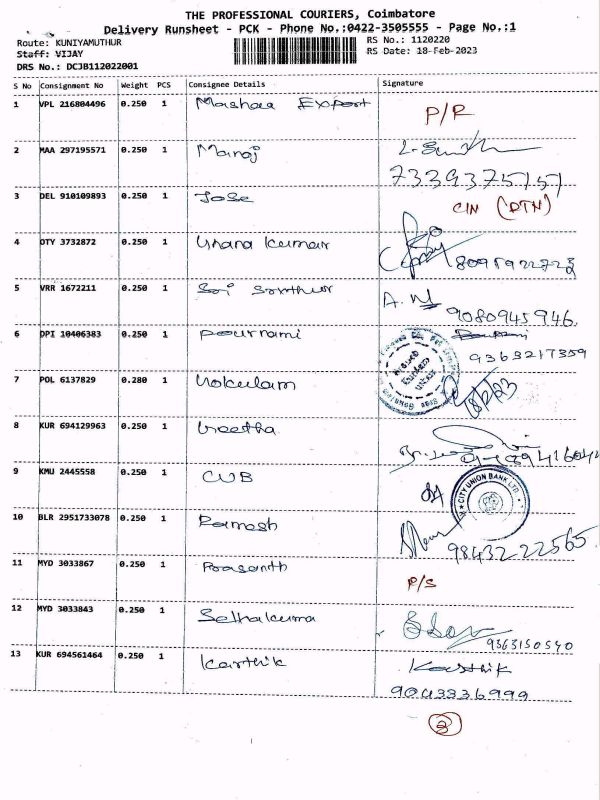 THE PROFESSIONAL COURIERS, Coimbatore
Delivery Runsheet - PCK - Phone No.:0422-3505555 - Page No.:1
Route: KUNIYAMUTHUR RS No.: 1120220
Staff: VIJAY RS Date: 18-Feb-2023
DRS No.: DCJB112022001
S No Consignment No Weight PCS Consignee Details Signature
1 VPL 216804496 0.250 1 Mashaa Export P/R
2 MAA 297195571 0.250 1 Manoj
7339375757
3 DEL 910109893 0.250 1 Jose CIN (DTN)
4 OTY 3732872 0.250 1 Unana Kumar
5 VRR 1672211 0.250 1 Sri
9080945946
6 DPI 10406383 0.250 1 Pournami
9363217359
7 POL 6137829 0.280 1 Uokulam 18/2/23
8 KUR 694129963 0.250 1 Ureetha
9 KMU 2445558 0.250 1 CUB
CITY UNION BANK LTD.
10 BLR 2951733078 0.250 1 Ramesh
9843222565
11 MYD 3033867 0.250 1 Prasanth
P/S
12 MYD 3033843 0.250 1 Sethakuma
9363150540
13 KUR 694561464 0.250 1 Karthik Karthik
9043336999
3